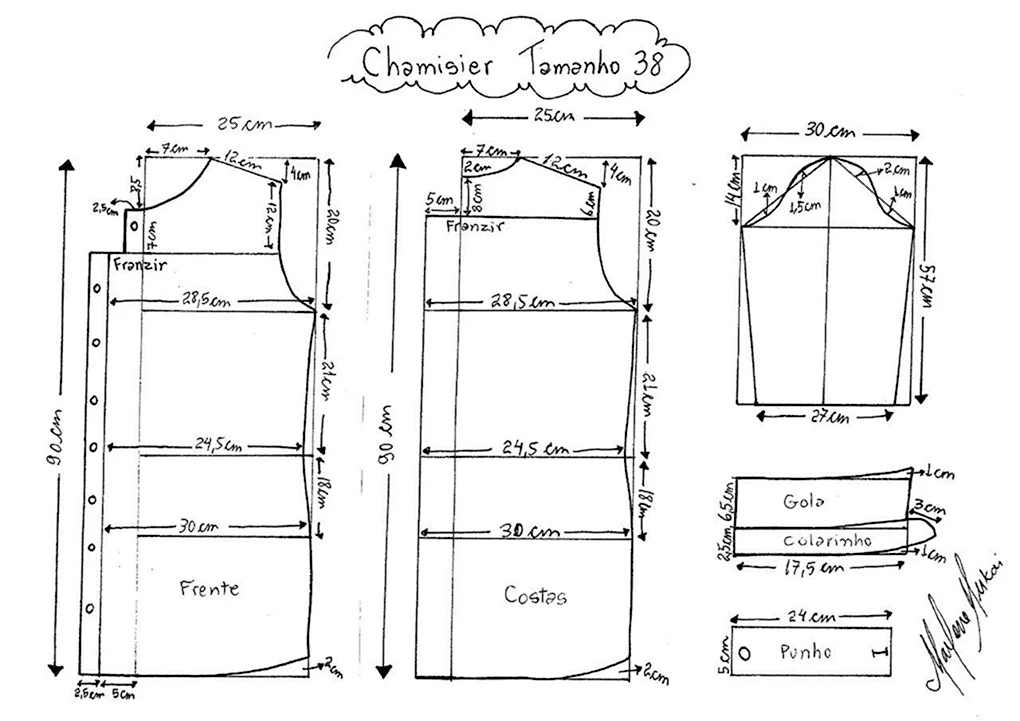 Chamisier Tamanho 38
25 cm
7 cm
12 cm
4 cm
7,5
2,5cm
7cm
12cm
20cm
Franzir
28,5cm
21cm
90cm
24,5cm
18cm
30 cm
Frente
2cm
2,5cm
5cm
25cm
7cm
2cm
12cm
4cm
5cm
8cm
6cm
20 cm
Franzir
28,5cm
21cm
90 cm
24,5cm
18cm
30 cm
Costas
2cm
30 cm
14cm
1cm
1,5cm
2cm
1cm
57cm
27cm
1cm
6,5cm
Gola
3cm
2,5cm
Colarinho
1cm
17,5cm
24cm
5cm
Punho
Marlene Mukai